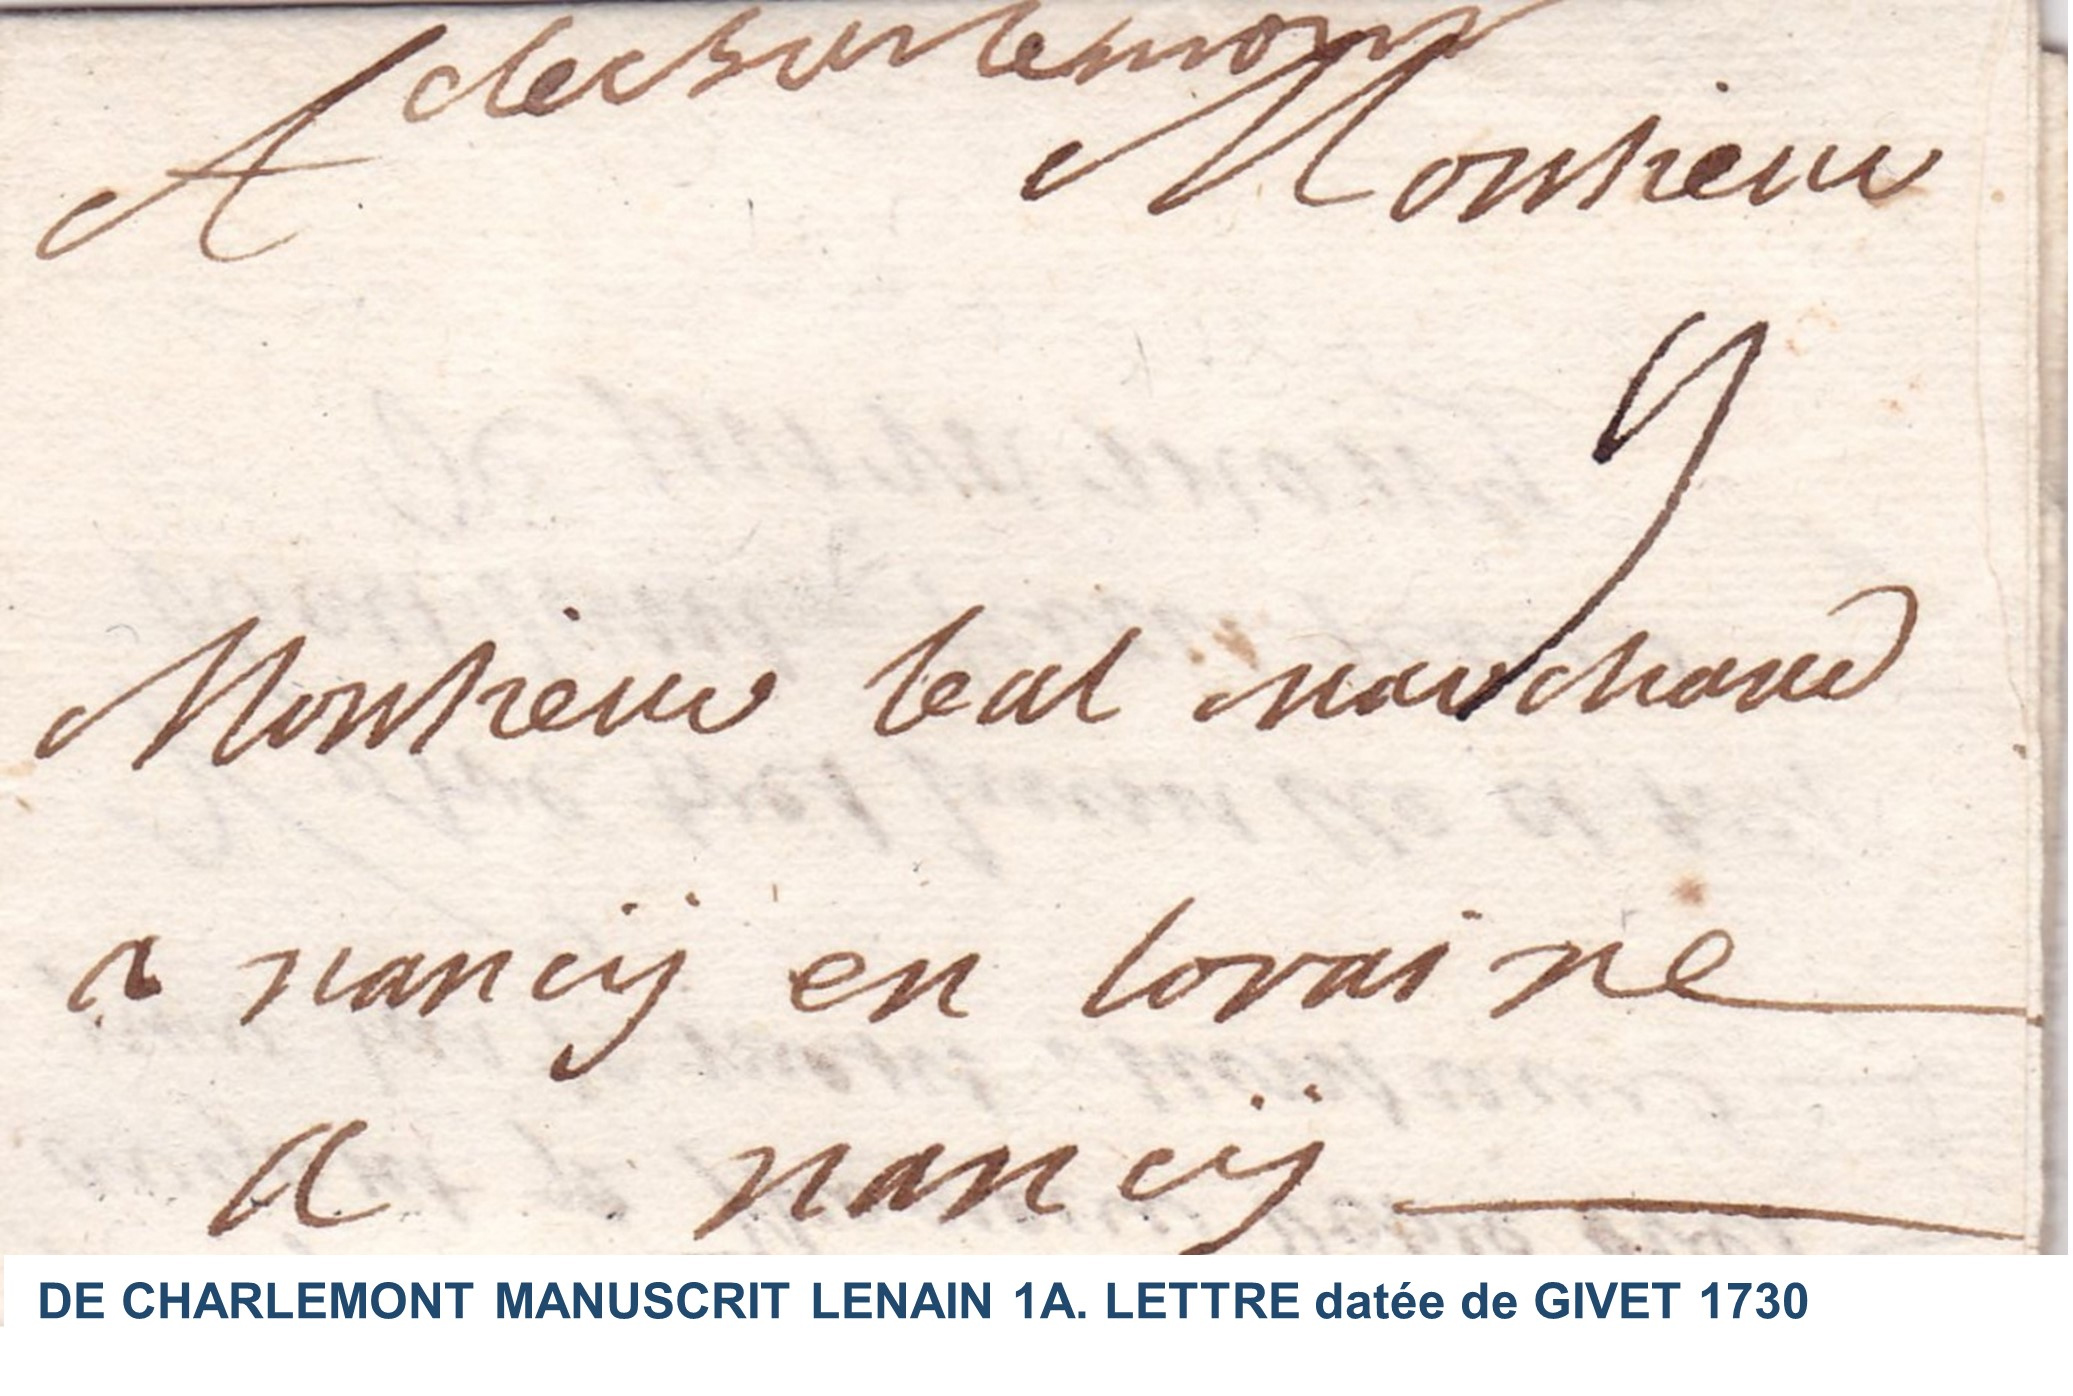 decharlemont
A Monsieur
9
Monsieur beal marchand
a nancij en loraine
A nancij
DE CHARLEMONT MANUSCRIT LENAIN 1A. LETTRE datée de GIVET 1730